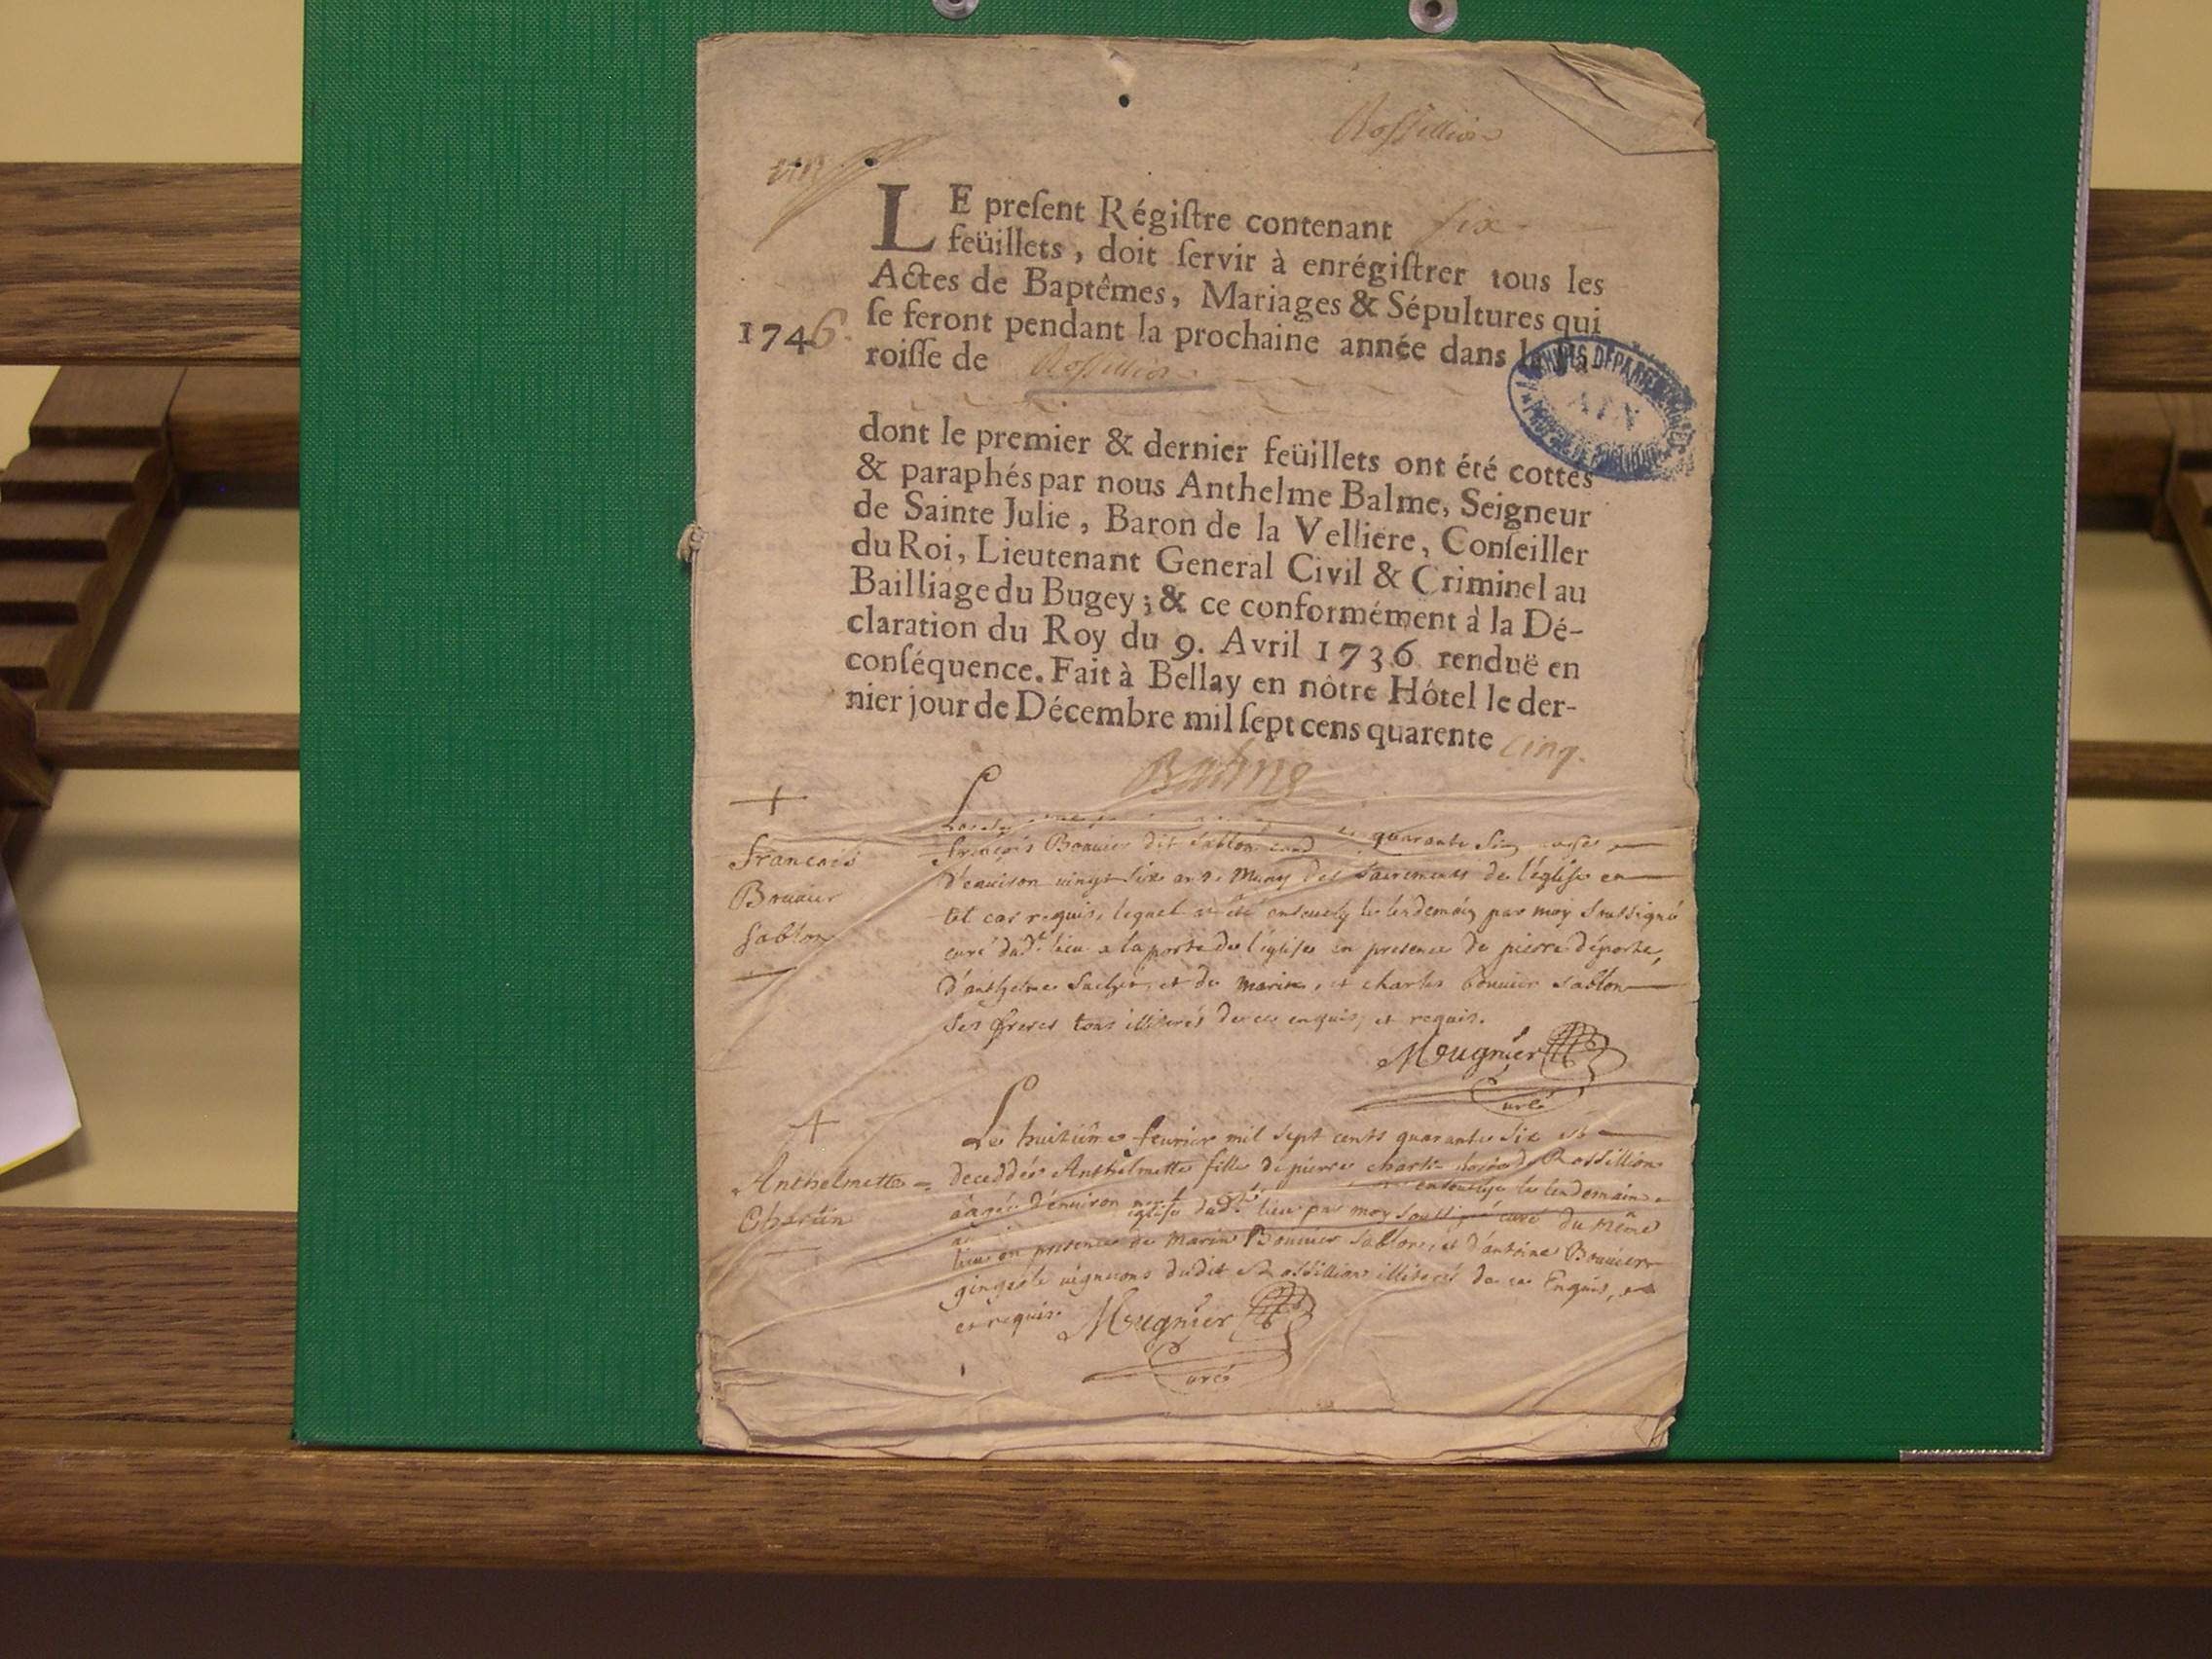 Rossillion
LE preſent Régiſtre contenant six
feüillets, doit ſervir à enrégiſtrer tous les
Actes de Baptêmes, Mariages & Sépultures qui
1746. ſe feront pendant la prochaine année dans la Pa-
roiſſe de Rossillion
ARCHIVES DEPARTEMENTALES
AIN
dont le premier & dernier feüillets ont été cottés
& paraphés par nous Anthelme Balme, Seigneur
de Sainte Julie, Baron de la Velliere, Conſeiller
du Roi, Lieutenant General Civil & Criminel au
Bailliage du Bugey; & ce conformément à la Dé-
claration du Roy du 9. Avril 1736. renduë en
conſéquence. Fait à Bellay en nôtre Hôtel le der-
nier jour de Décembre mil ſept cens quarente cinq.
Balme
francois
Bouuier
Sablon
françois Bouuier dit Sablon quarante Six
d'enuiron uingt six ans Muny des Sacrements de l'église en
tel cas requis, lequel a été enseuely le lendemain par moy Soussigné
curé dud.t lieu a la porte de l'église en presence de pierre déporte,
d'anthelme et de marin, et charles bouuier Sablon
Ses freres tous illiterés de ce enquis, et requis.
Meugnier
Curé
Anthelmette
Charlin
Le huitiême feurier mil sept cents quarante Six est
deceddée Anthelmette fille de pierre de Rossillion
âagée d'enuiron enseuelye le lendemain
église dud.t lieu par moy soussigné curé du même
lieu en presence de marin Bouuier Sablon, et d'antoine Bouuier
uignerons dudit Rossillion illiterés de ce Enquis,
et requis. Meugnier
Curé